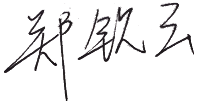 郑钦云